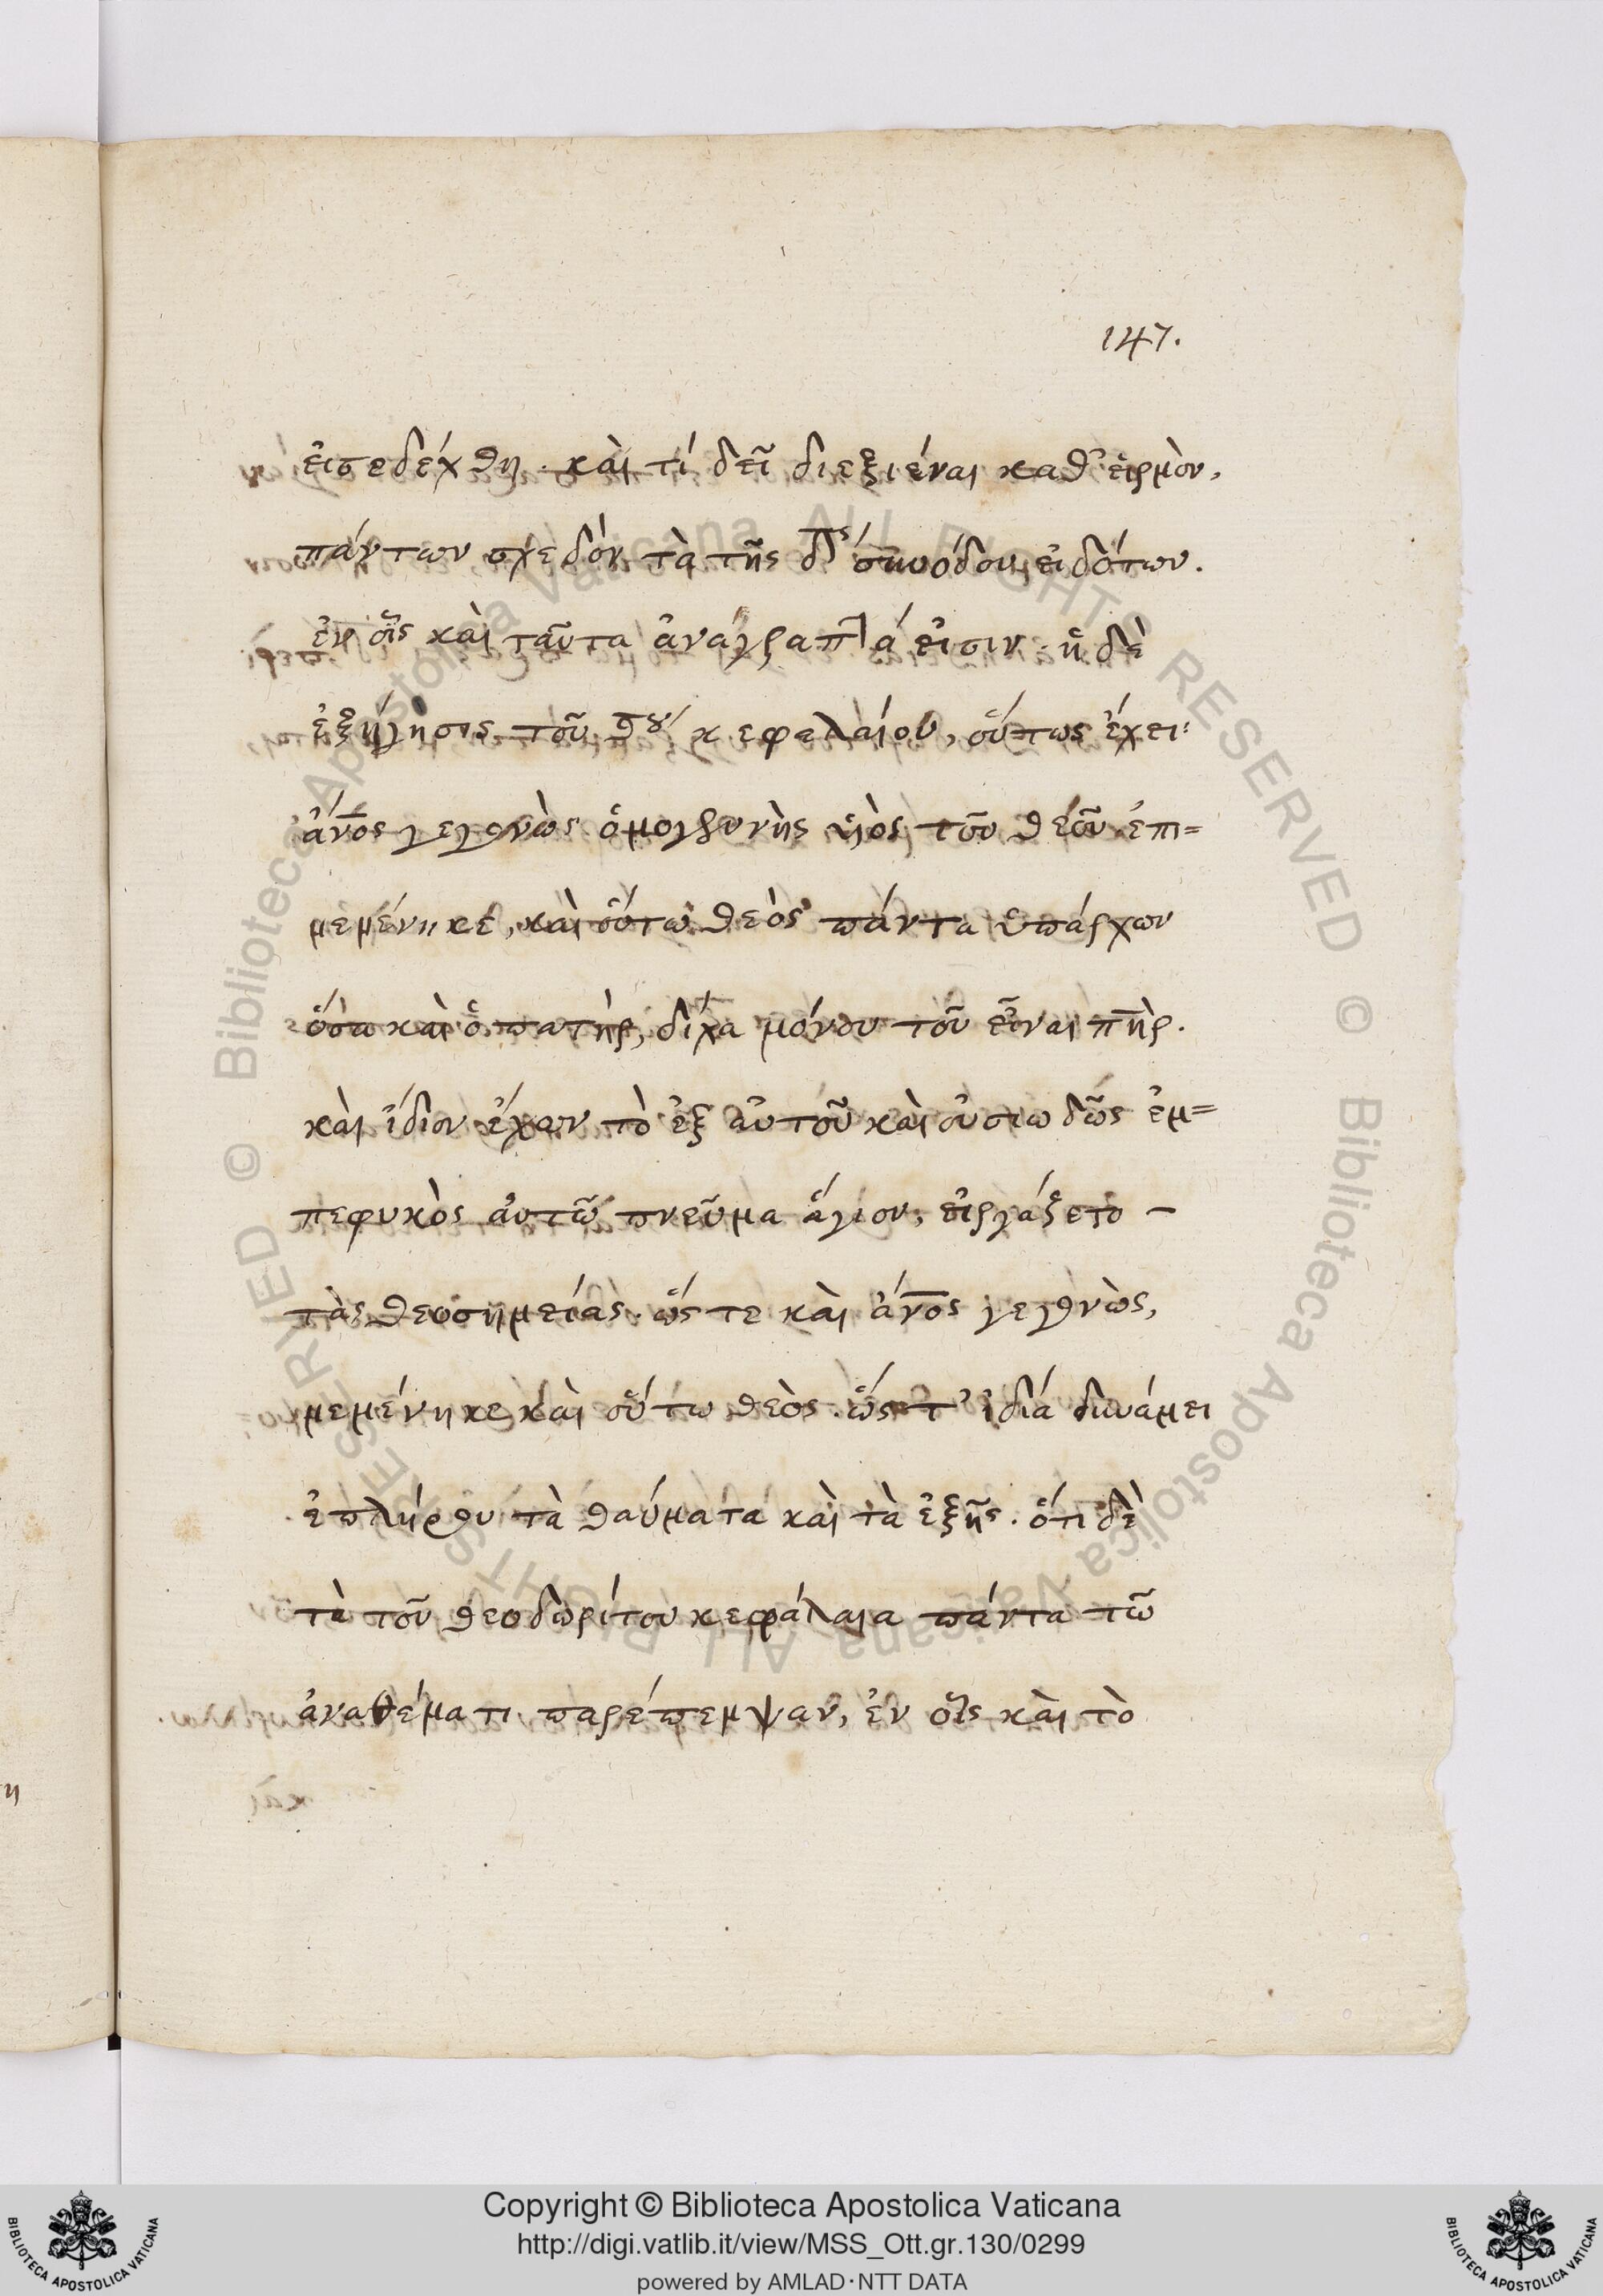 147.
εἰσεδέχθη. καὶ τί δεῖ διεξιέναι καθ' εἱρμὸν,
πάντων σχεδὸν τὰ τῆς δ´ συνόδου εἰδότων.
ἐν οἷς καὶ ταῦτα ἀνάγραπτά εἰσιν. ἡ δὲ
ἐξήγησις τοῦ θου κεφαλαίου, οὕτως ἔχει·
ἄνος γεγονὼς ὁ μονογενὴς υἱὸς τοῦ θεοῦ ἐπι=
μεμένηκε, καὶ οὕτω θεὸς πάντα ὑπάρχων
ὅσα καὶ ὁ πατὴρ, δίχα μόνου τοῦ εἶναι πηρ.
καὶ ἴδιον ἔχων τὸ ἐξ αὐτοῦ καὶ οὐσιωδῶς ἐμ=
πεφυκὸς αὐτῶ πνεῦμα ἅγιον, εἰργάζετο –
τὰς θεοσημείας. ὥς τε καὶ ἄνος γεγονὼς,
μεμένηκε καὶ οὕτω θεὸς. ὥς τ' ἰδία δυνάμει
ἐπλήρου τὰ θαύματα καὶ τὰ ἑξῆς. ὅτι δὲ
τὰ τοῦ θεοδωρίτου κεφάλαια πάντα τῶ
ἀναθέματι παρέπεμψαν, ἐν οἷς καὶ τὸ
η
Copyright © Biblioteca Apostolica Vaticana
http://digi.vatlib.it/view/MSS_Ott.gr.130/0299
powered by AMLAD·NTT DATA
BIBLIOTECA APOSTOLICA VATICANA
BIBLIOTECA APOSTOLICA VATICANA
© Biblioteca Apostolica Vaticana ALL RIGHTS RESERVED
© Biblioteca Apostolica Vaticana ALL RIGHTS RESERVED